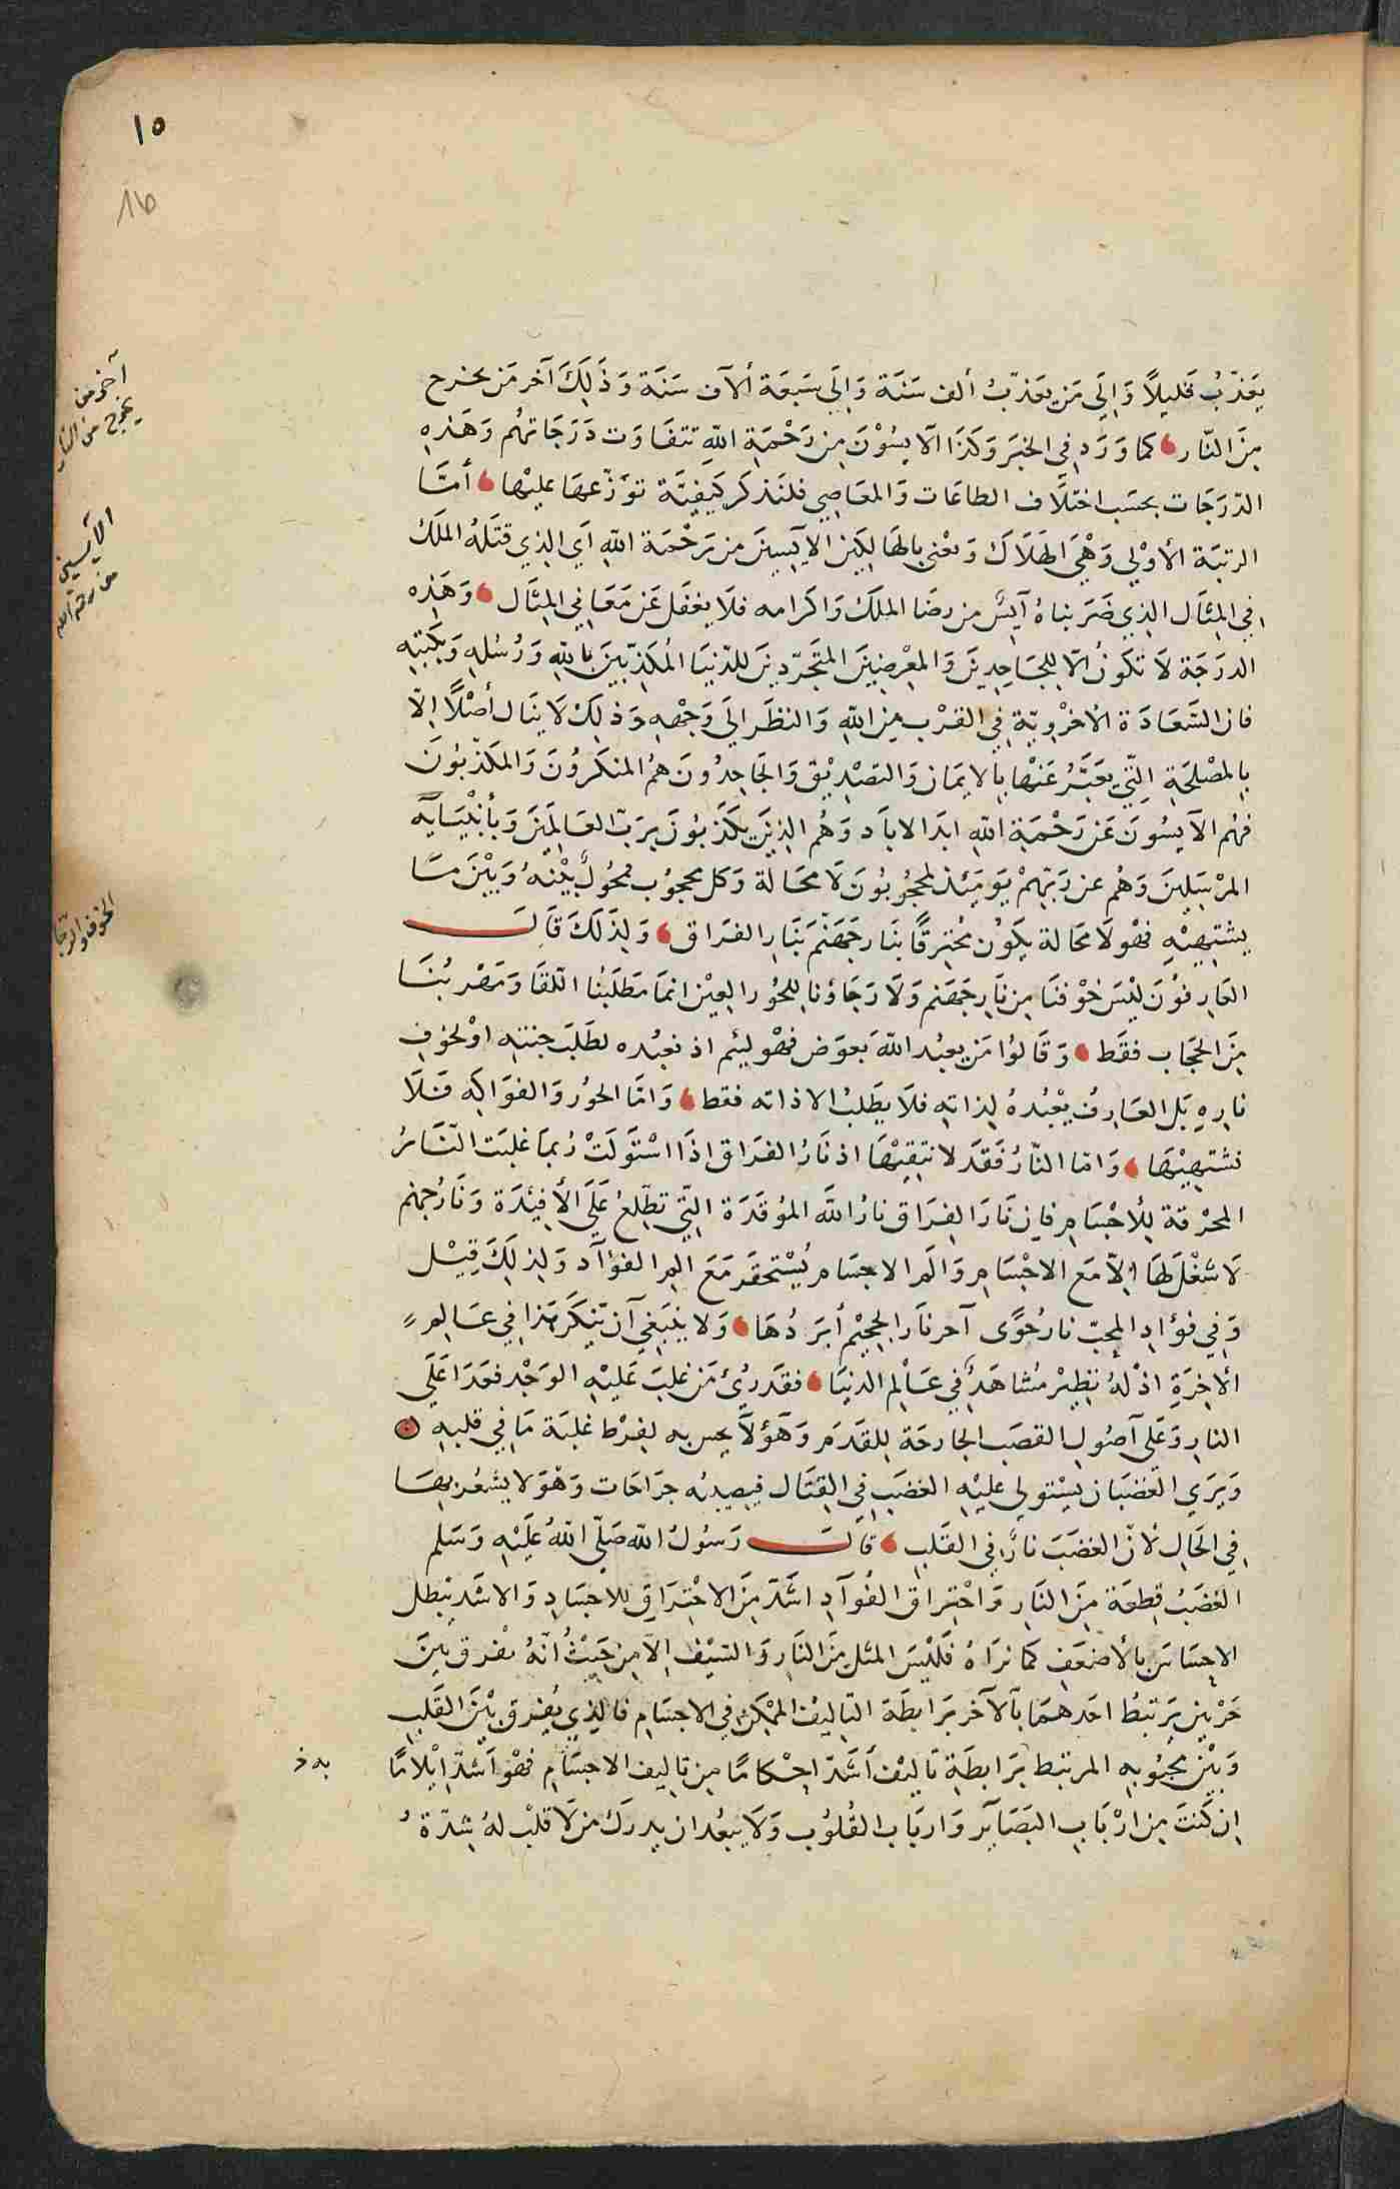 ١٥
16
يعَذّبُ قليلاً وَالِي مَن يعَذّبُ ألف سَنَة وَالَي سَبعَة ألآف سَنَة وَذَلِكَ آخر مَن يخرج
مِنَ النّار كما وَرَد فِي الخبَر وَكذَا الآيسُوْنَ مِن رَحْمَةِ اللهِ تتفَاوَت دَرَجَاتهُم وَهَذِهِ
الدّرَجَات بحسَب اختلَاف الطاعَات وَالمعَاصِي فلنَذكر كَيفِيَّة توَزّعهَا عليْها أمّا
الرتبَة الأوْلي وَهْيَ الهَلَاكَ وَيعْنى بالهَالِكين الآيِسِينَ مِن رَحْمَة اللهِ اَي الذِي قتَلهُ الملَكُ
فِي المِثَال الذِي ضَرَبناهُ آيسٌ من رضَا الملَكْ وَاكرامه فلَا يغفَل عَن مَعَانِي المِثَال وَهَذِه
الدرَجَة لَا تكَونُ الاّ للجَاحِدِينَ وَالمعْرضِينَ المتَجَرّدِينَ للدّنيَا المُكَذّبِينَ باللهِ وَرُسُلهِ وَكتبِهِ
فان السَّعَادَة الأخرْوِيّة فِي القرْب مِن اللهِ وَالنظَر الَي وَجْهِهِ وَذلِكَ لَا ينَال أصْلًا إلاّ
بِالمصْلحَةِ الِتّي يعَبَّرُ عَنْها بِالايمَان وَالتصْدِيْق وَالجَاحِدُونَ همُ المنكَرُونَ وَالمكَذّبُونَ
فهُم الآيسُونَ عَن رَحْمَةِ اللهِ ابدَ الاباَد وَهُم الذِينَ يكَذّبُونَ برَبّ العَالمِينَ وَبأنْبْيَايَه
المرْسَلِينَ وَهْم عن رَبّهِمْ يَومَئذ لمحجُوبُونَ لَا محَالة وَكل محجوُب محُولٌ بيْنَهُ وَبيْنَ مَا
يشتهِيْهِ فهْولَا محَالة يكَوُن محُترقًا بنَار جَهَنّم بَنَارِ الفرَاق وَلِذَلكَ قَالَ
العَارِفوُنَ ليْسَ خوْفنَا مِن نَارِ جَهَنم وَلَا رَجَاؤنا للحُور العيْن انمَا مَطلَبُنا اللّقَا وَمَهْربُنَا
مِنَ الحجَاب فقَط وَقَالوُا مَن يعبُد اللهَ بعوَض فهْو ليئم اذ نعبُده لطَلبَ جنتهِ اوْ لخوَفِ
نارهِ بَل العَارِفُ يعْبُدهُ لِذاتهِ فلَا يطَلبُ الا ذاته فقط وَامّا الحوُر وَالفوَاكه فَلَا
نشتهِيْهَا وَامّا النّارُ فقَدَ لا نتقِيْهَا اذ نَارُ الفرَاق اِذَا اسْتَولَتْ رُبمَا غلبَت النّارُ
المحْرقة لِلأجْسَامِ فاِن نَارَ الفِرَاق نارُ اللهَ الموُقَدَة التِّي تطّلِعُ عَلَي الأفيئدَة وَنَارُ جهنم
لَا شغْل لهَا اِلاّ مَع الاجْسَامِ وَالَم الاجسَام يُسْتحقَر مَعَ الم الفؤآد وَلِذلِكَ قِيْل
وَفِي فؤادِ المِحبّ نارُ حَوًى آحر نَارِ الجحِيْم أبرَدُهَا وَلا ينبَغي آن تنِكَر هَذا فِي عَالم
الاخِرَةِ اذْلهُ نظِيْر مُشاهَدٌ فِي عَالَم الدنيَا فقَدرُئ مَن غلبَ عَليْهِ الوَجْد فعَدَا عَلَي
النار وَعَلي آصُول القصَب الجارحَة للقَدَم وَهَؤلَا يحس به لفرْط غلبَة مَا فِي قلبهِ
وَيَرَي الغَضْبَان يسْتولي عليْهِ الغضَب فِي القِتَال فيصِيبُه جرَاحَات وَهْو لا يشعُر بهَا
فِي الحَال لأنّ الغضَبَ نارٌ فِي القَلب قَالَ رَسُولُ الله صَلّي اللهُ عليْهِ وَسَلم
الغضَبُ قِطعَة مِنَ النَارِ وَاحْتِراق الفُوآدِ اشَدّ مِنَ الاحْتِرَاقِ للاجسَادِ وَالاشَدّ يبْطل
الاحِسَاسَ بالأضعَفِ كما نرَاهُ فلَيْسَ المثل مِنَ النَارِ وَالسّيْف اِلاّ مِن حَيْثُ أنّهُ يفْرق بَينَ
جَزْئين يَرتبَطُ احَدهمَا بآلاخر برَابطَة التاليْف الممْكَن فِي الاجسَامِ فالذِي يُفرَق بيْنَ القَلبِ
وَبيْنَ محبُوبه المرتبَط بِرَابطَةِ تَاليْف أشَدّ احْكامًا مِن تاليف الاجسَامِ فهْو اَشدّ اِيْلامًا
اِن كنتَ مِن ارْبَاب البَصَائر وَارْبَاب القُلوُب وَلَا يبعُد ان يدركَ من لَا قلبْ لهُ شِدّة
آخر من
يخرج من النار
الآيسين
من رحمة الله
الخوف والرجا
به خ